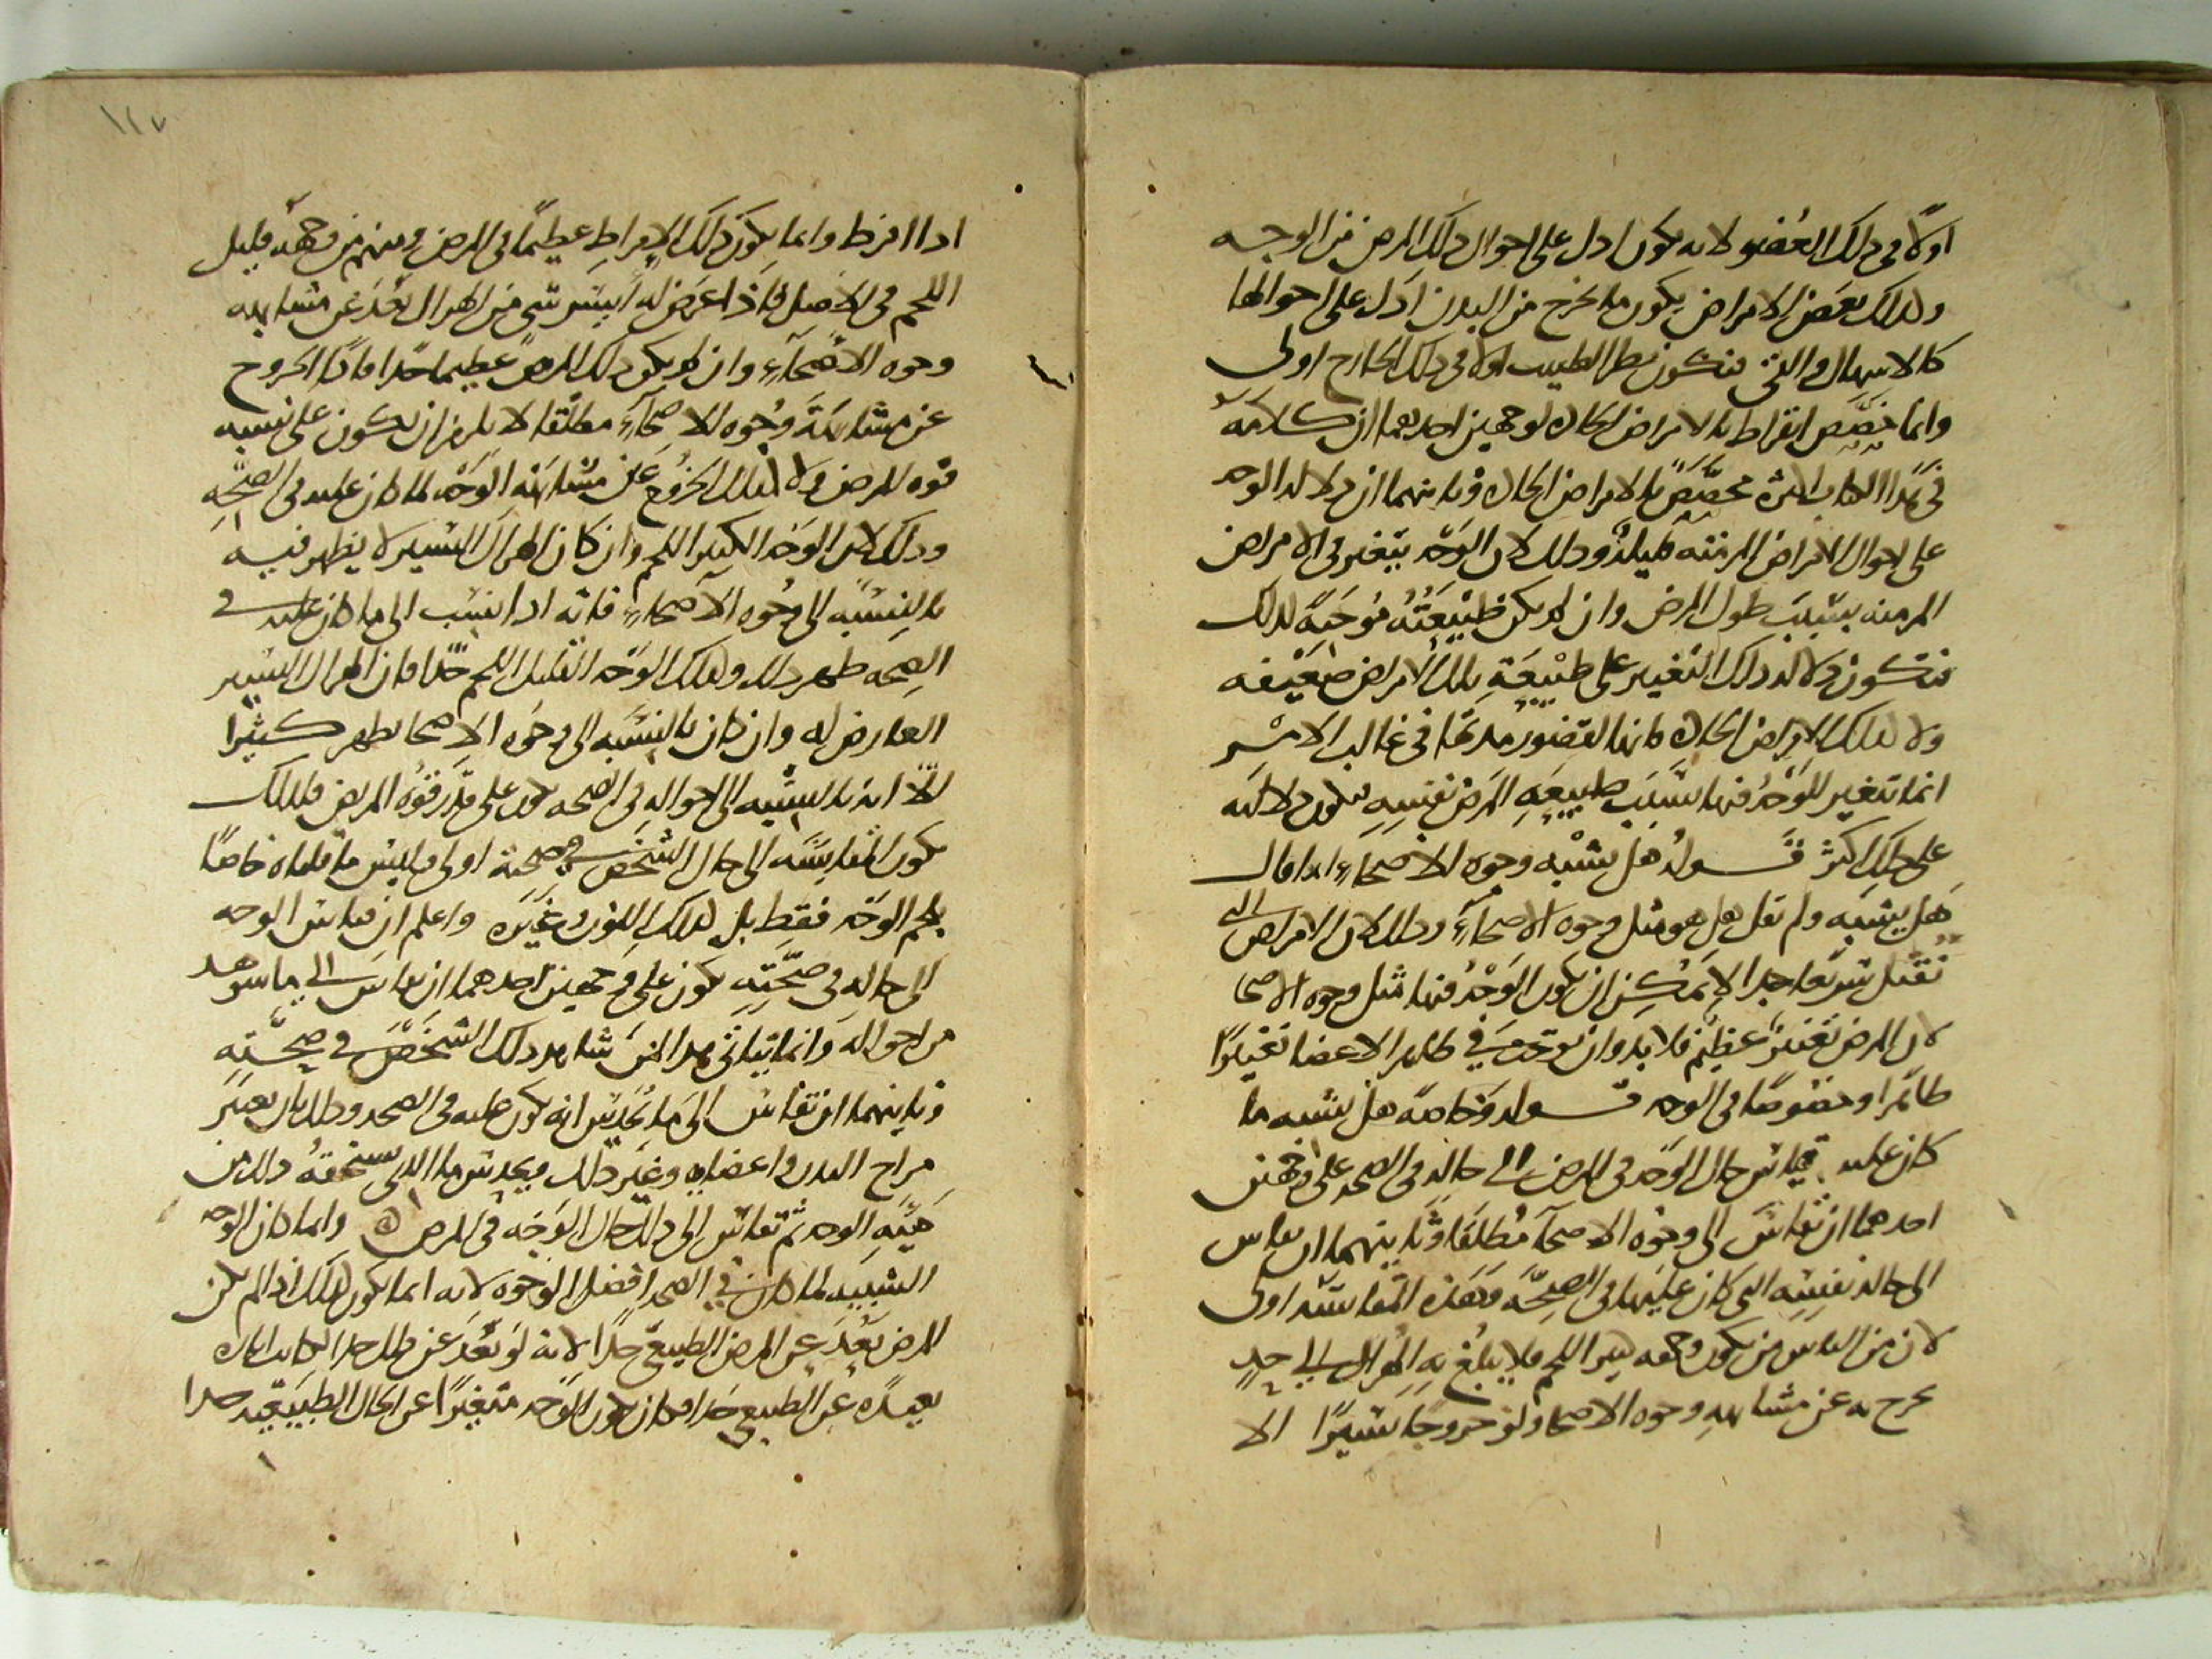 اولا فى ذلك العضو لانه يكون ادل على احوال ذلك المرض من الوجه
ولذلك بعض الامراض يكون ما يخرج من البدن ادل على احوالها
كالاسهال والقئ فتكون نظر الطبيب اولا فى ذلك الخارج اولى
وانما خصص ابقراط بالامراض الحادة لوجهين احدهما ان كلامه
فى هذا الكتاب اكثره مخصص بالامراض الحادة وثانيهما ان دلالة الوجه
على احوال الامراض المزمنة قليلة وذلك لان الوجه يتغير فى الامراض
المزمنه بسبب طول المرض وان لم يكن طبيعته موجبة لذلك
فتكون دلالة ذلك التغير على طبيعة تلك الامراض ضعيفه
ولا كذلك الامراض الحادة فانها لقصور مدتها فى غالب الامر
انما تتغير الوجه فيها بسبب طبيعة المرض نفسه فتكون دلالته
على ذلك اكثر قوله هل يشبه وجوه الاصحاء انما قال
هل يشبه ولم يقل هل هو مثل وجوه الاصحاء وذلك لان الامراض التى
تقتل سريعا جدا لا يمكن ان يكون الوجه فيها مثل وجوه الاصحا
لان المرض تغير عظيم فلا بد وان يوجب فى ظاهر الاعضا تغيرا
ظاهرا وخصوصا فى الوجه قوله وخاصة هل يشبه ما
كان عليه قياس حال الوجه فى المرض الى حاله فى الصحة على وجهين
احدهما ان يقاس الى وجوه الاصحآ مطلقا وثانيهما ان يقاس
الى حاله نفسه التى كان عليها فى الصحة وهذه المقايسة اولى
لان من الناس من يكون وجهه كثير اللحم فلا يبلغ به الهزال الى حد
يخرج به عن مشابهة وجوه الاصحا ولو خروجا يسيرا الا
١٢٧
اذا افرط وانما يكون ذلك الافراط عظيما فى المرض ومنهم من وجهه قليل
اللحم فى الاصل فاذا عرض له ايسر شى من الهزال بعد عن مشابهة
وجوه الاصحآء وان لم يكن ذلك المرض عظيما جدا فاذا الخروج
عن مشابهة وجوه الاصحآء مطلقا لا يلزم ان يكون على نسبه
قوة المرض ولا كذلك الخروج عن مشابهة الوجه لما كان عليه فى الصحة
وذلك لان الوجه الكثير اللحم وان كان الهزال اليسير لا يظهر فيه
بالنسبه الى وجوه الاصحاء فانه اذا نسب الى ما كان عليه فى
الصحه ظهر ذلك وكذلك الوجه القليل اللحم جدا فان الهزال اليسير
العارض له وان كان بالنسبه الى وجوه الاصحا يظهر كثيرا
الا انه بالنسبه الى احواله فى الصحه يكون على قدر قوة المرض فلذلك
يكون المقايسه الى حال الشخص فى صحته اولى وليس ما قلناه خاصا
بلحم الوجه فقط بل كذلك اللون وغيره واعلم ان قياس الوجه
الى حاله فى صحته يكون على وجهين احدهما ان يقاس الى ما شوهد
من احواله وانما يتاتى هذا لمن شاهد ذلك الشخص فى صحته
وثانيهما ان يقاس الى ما يحدس انه يكون عليه فى الصحه وذلك بان يعتبر
مزاج البدن واعضايه وغير ذلك ويحدس ما الذى يستحقه ذلك من
هيئة الوجه ثم يقاس الى ذلك حال الوجه فى المرض وانما كان الوجه
الشبيه لما كان فى الصحه افضل الوجوه لانه انما يكون كذلك اذا لم يكن
المرض بعد عن المرض الطبيعى جدا لانه لو بعد عن ذلك جدا لكانت الحال
بعيدة عن الطبيعى جدا فكان يكون الوجه متغيرا عن الحال الطبيعية جدا